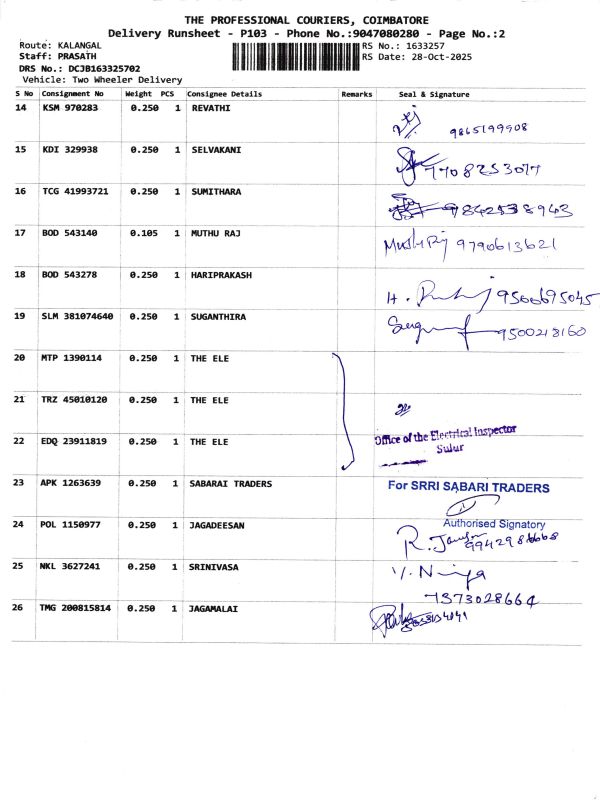 THE PROFESSIONAL COURIERS, COIMBATORE
Delivery Runsheet - P103 - Phone No.:9047080280 - Page No.:2
Route: KALANGAL
RS No.: 1633257
Staff: PRASATH
RS Date: 28-Oct-2025
DRS No.: DCJB163325702
Vehicle: Two Wheeler Delivery
S No Consignment No Weight PCS Consignee Details Remarks Seal & Signature
14 KSM 970283 0.250 1 REVATHI
9865199908
15 KDI 329938 0.250 1 SELVAKANI
7708253077
16 TCG 41993721 0.250 1 SUMITHARA
9842538943
17 BOD 543140 0.105 1 MUTHU RAJ
9790613621
18 BOD 543278 0.250 1 HARIPRAKASH
H. 9566695045
19 SLM 381074640 0.250 1 SUGANTHIRA
9500218160
20 MTP 1390114 0.250 1 THE ELE
21 TRZ 45010120 0.250 1 THE ELE
22 EDQ 23911819 0.250 1 THE ELE
Office of the Electrical Inspector
Sulur
23 APK 1263639 0.250 1 SABARAI TRADERS
For SRRI SABARI TRADERS
Authorised Signatory
24 POL 1150977 0.250 1 JAGADEESAN
R.
25 NKL 3627241 0.250 1 SRINIVASA
7373028664
26 TMG 200815814 0.250 1 JAGAMALAI